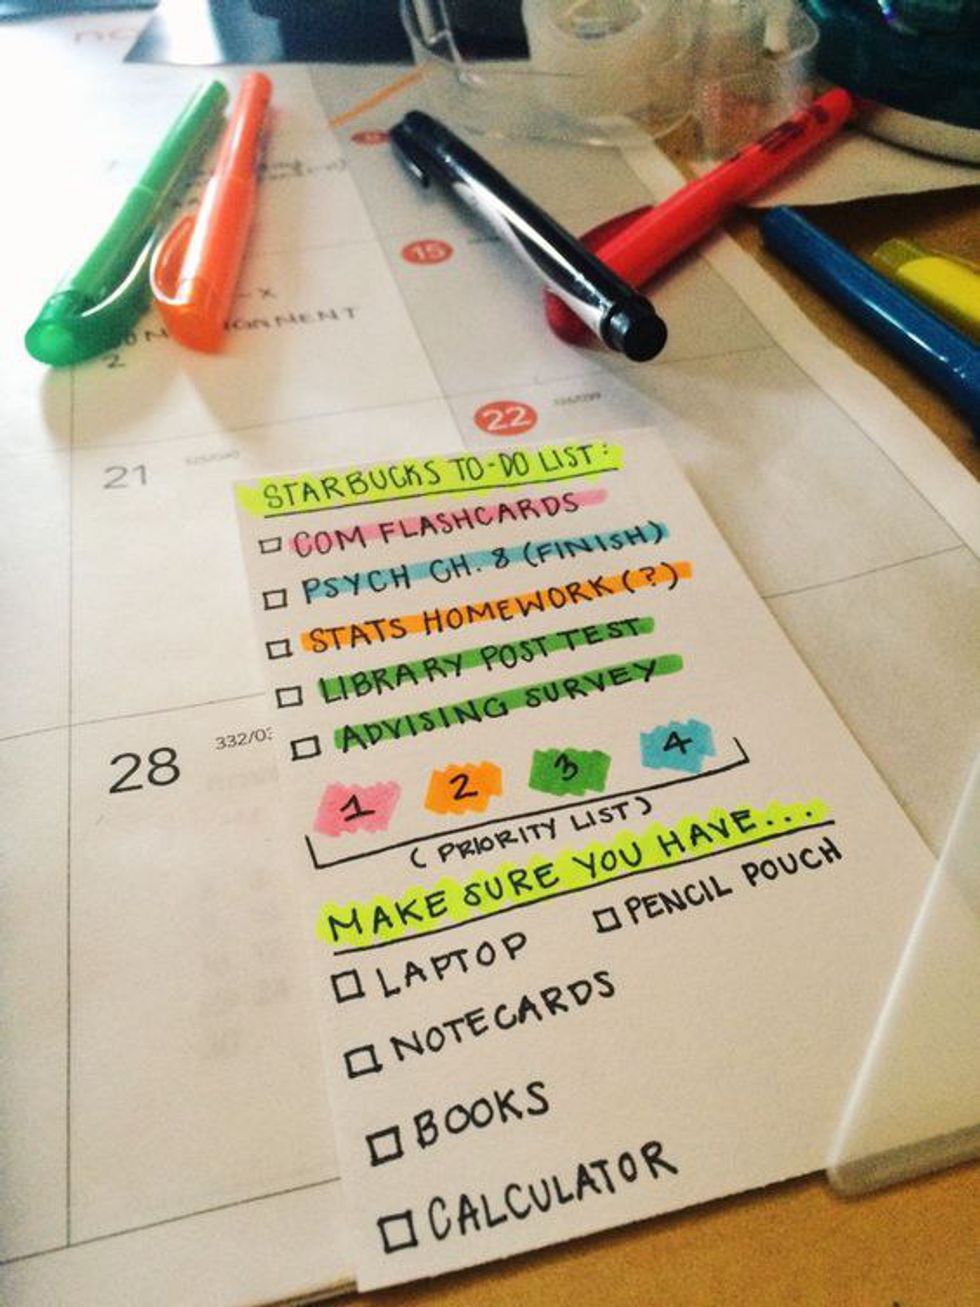 15
22
21
28
332/03
STARBUCKS TO-DO LIST:
COM FLASHCARDS
PSYCH CH. 8 (FINISH)
STATS HOMEWORK (?)
LIBRARY POST TEST
ADVISING SURVEY
1 2 3 4
(PRIORITY LIST)
MAKE SURE YOU HAVE...
LAPTOP PENCIL POUCH
NOTECARDS
BOOKS
CALCULATOR